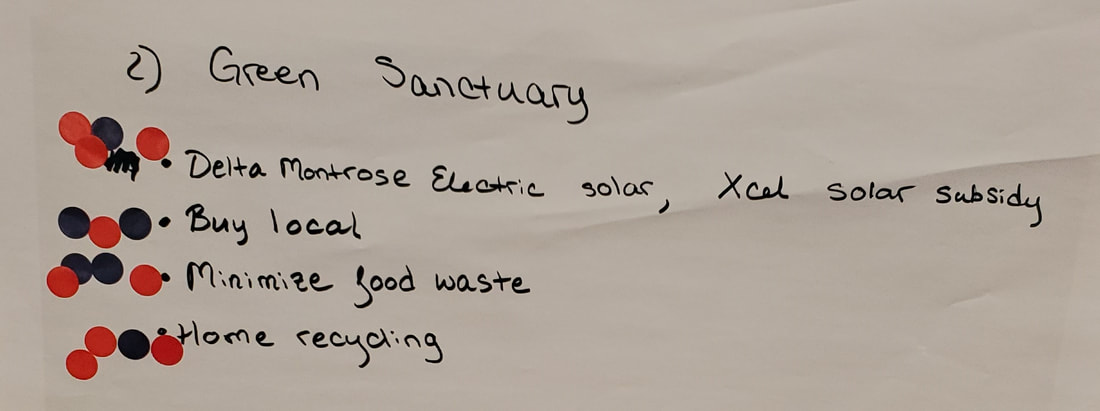 2) Green Sanctuary
• Delta Montrose Electric solar, Xcel solar subsidy
• Buy local
• Minimize food waste
• Home recycling